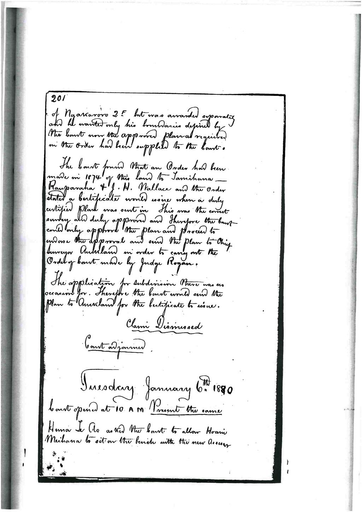 201
of Ngakaroro 2E but was awarded separately
and he wanted only his boundaries defined by
the Court now the approved plan as required
in the Order had been supplied to the Court.
The Court found that an Order had been
made in 1874 of this land to Tamihana
Rauparaha & J. H. Wallace and the Order
stated a Certificate would issue when a duly
certified Plan was sent in. This was the correct
survey and duly approved and therefore the Court
could only approve the plan and proceed to
endorse the approval and send the plan to Chief
Surveyor Auckland in order to carry out the
Order of Court made by Judge Rogan.
The application for subdivision there was no
occasion for. Therefore the Court would send the
plan to Auckland for the Certificate to issue.
Claim Dismissed
Court adjourned.
Tuesday January 6th 1880
Court opened at 10 AM Present the same
Hema Te Ao asked the Court to allow Hoani
Meihana to sit on the bench with the new Assessor